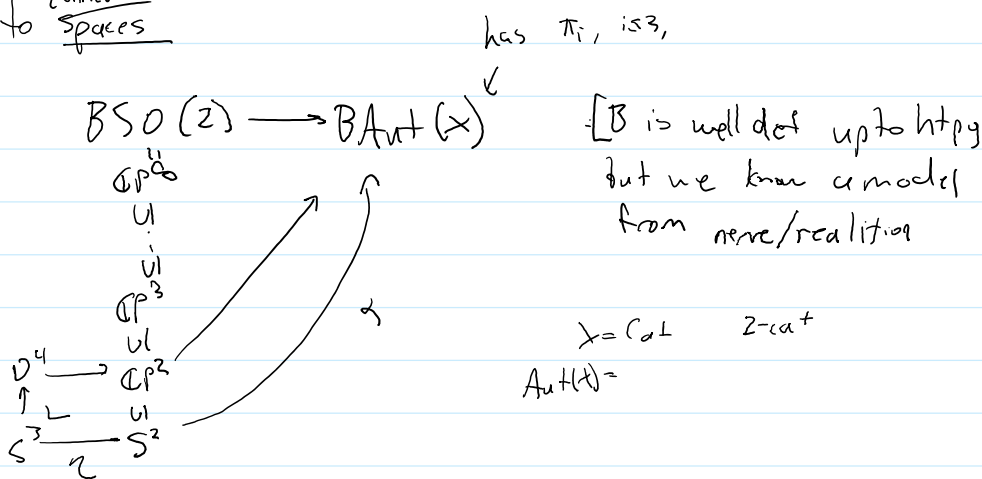 to spaces
has πi, i≤3,
BSO(2) ⟶ BAut(X)
[B is well def up to htpy
but we know a model
from nerve/realition
=
ℂP^∞
∪|
⋮
∪|
ℂP³
∪|
D⁴ ⟶ ℂP²
∪|
S³ ⟶ S²
η
α
X = Cat 2-cat
Aut(X) =